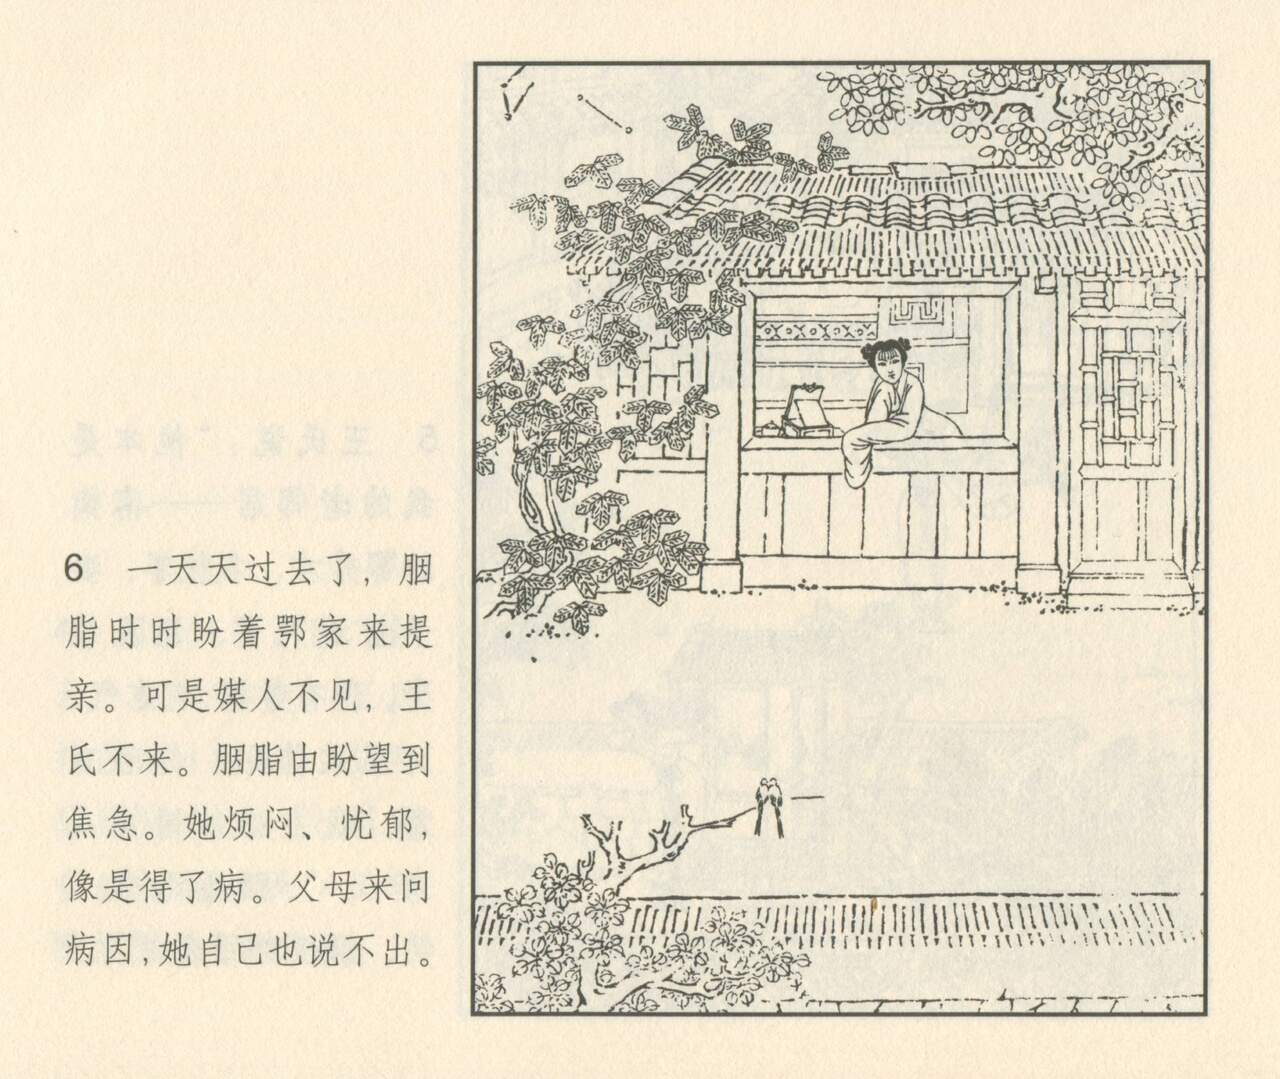 6 一天天过去了，胭
脂时时盼着鄂家来提
亲。可是媒人不见，王
氏不来。胭脂由盼望到
焦急。她烦闷、忧郁，
像是得了病。父母来问
病因，她自己也说不出。